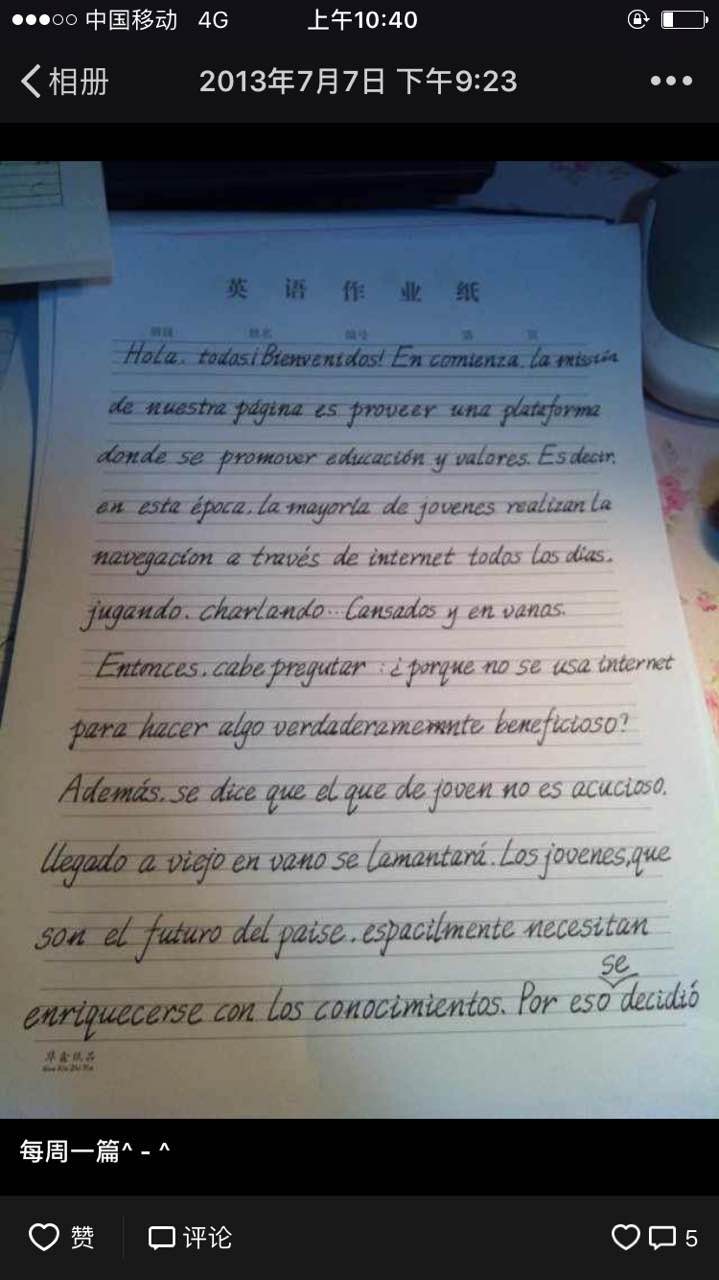 中国移动 4G 上午10:40
相册 2013年7月7日 下午9:23
英语作业纸
Hola. todos¡Bienvenidos! En comienza, la misión
de nuestra página es proveer una plataforma
donde se promover educación y valores. Es decir,
en esta época, la mayoría de jovenes realizan la
navegación a través de internet todos los días,
jugando, charlando… Cansados y en vanos.
Entonces, cabe pregutar :¿porque no se usa internet
para hacer algo verdaderamemnte beneficioso?
Además, se dice que el que de joven no es acucioso,
llegado a viejo en vano se lamantará. Los jovenes,que
son el futuro del paise, espacilmente necesitan
se
enriquecerse con los conocimientos. Por eso decidió
华鑫纸品
Hua Xin Zhi Pin
每周一篇^ - ^
赞 评论 5